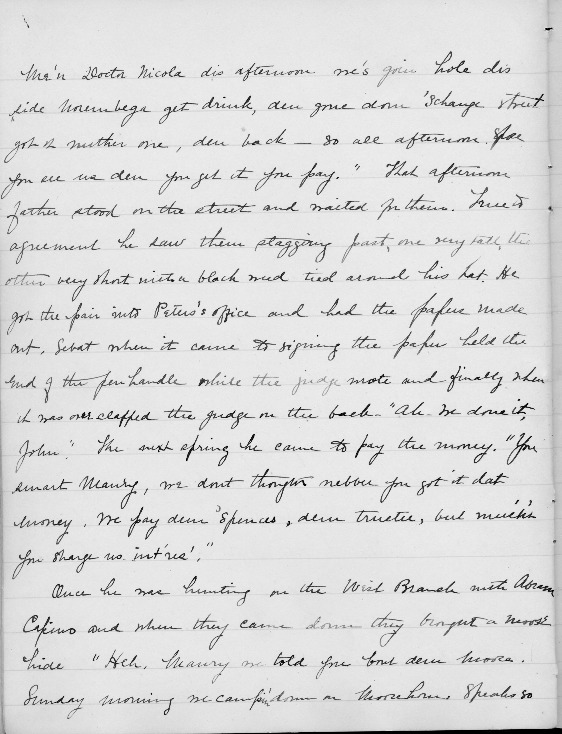 Me'n Doctor Nicola dis afternoon we's goin hole dis
side Norembega get drink, den gone down 'Schange street
got it nuther one, den back — so all afternoon. Spose
you see us den you get it you pay." That afternoon
father stood on the street and waited for them. True to
agreement he saw them stagging past, one very tall, the
other very short with a black weed tied around his hat. He
got the pair into Peters's office and had the papers made
out. Sebat when it came to signing the paper held the
end of the penhandle while the judge wrote and finally when
it was over slapped the judge on the back – "Ah – we done it,
John". The next spring he came to pay the money. "You
smart Mauny, we dont thought nebber you got it dat
money. We pay dem 'Spences, dem trustee, but much's
you sharge us int'res'."
Once he was hunting on the West Branch with
and when they came down they brought a moose
hide "Heh, Mauny we told you bout dem moose.
Sunday morning we campin down on Moosehorn. Speaks so